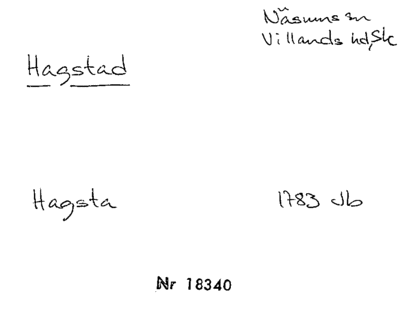 Näsums sn
Villands hd, Sk
Hagstad
Hagsta 1783 Jb
Nr 18340